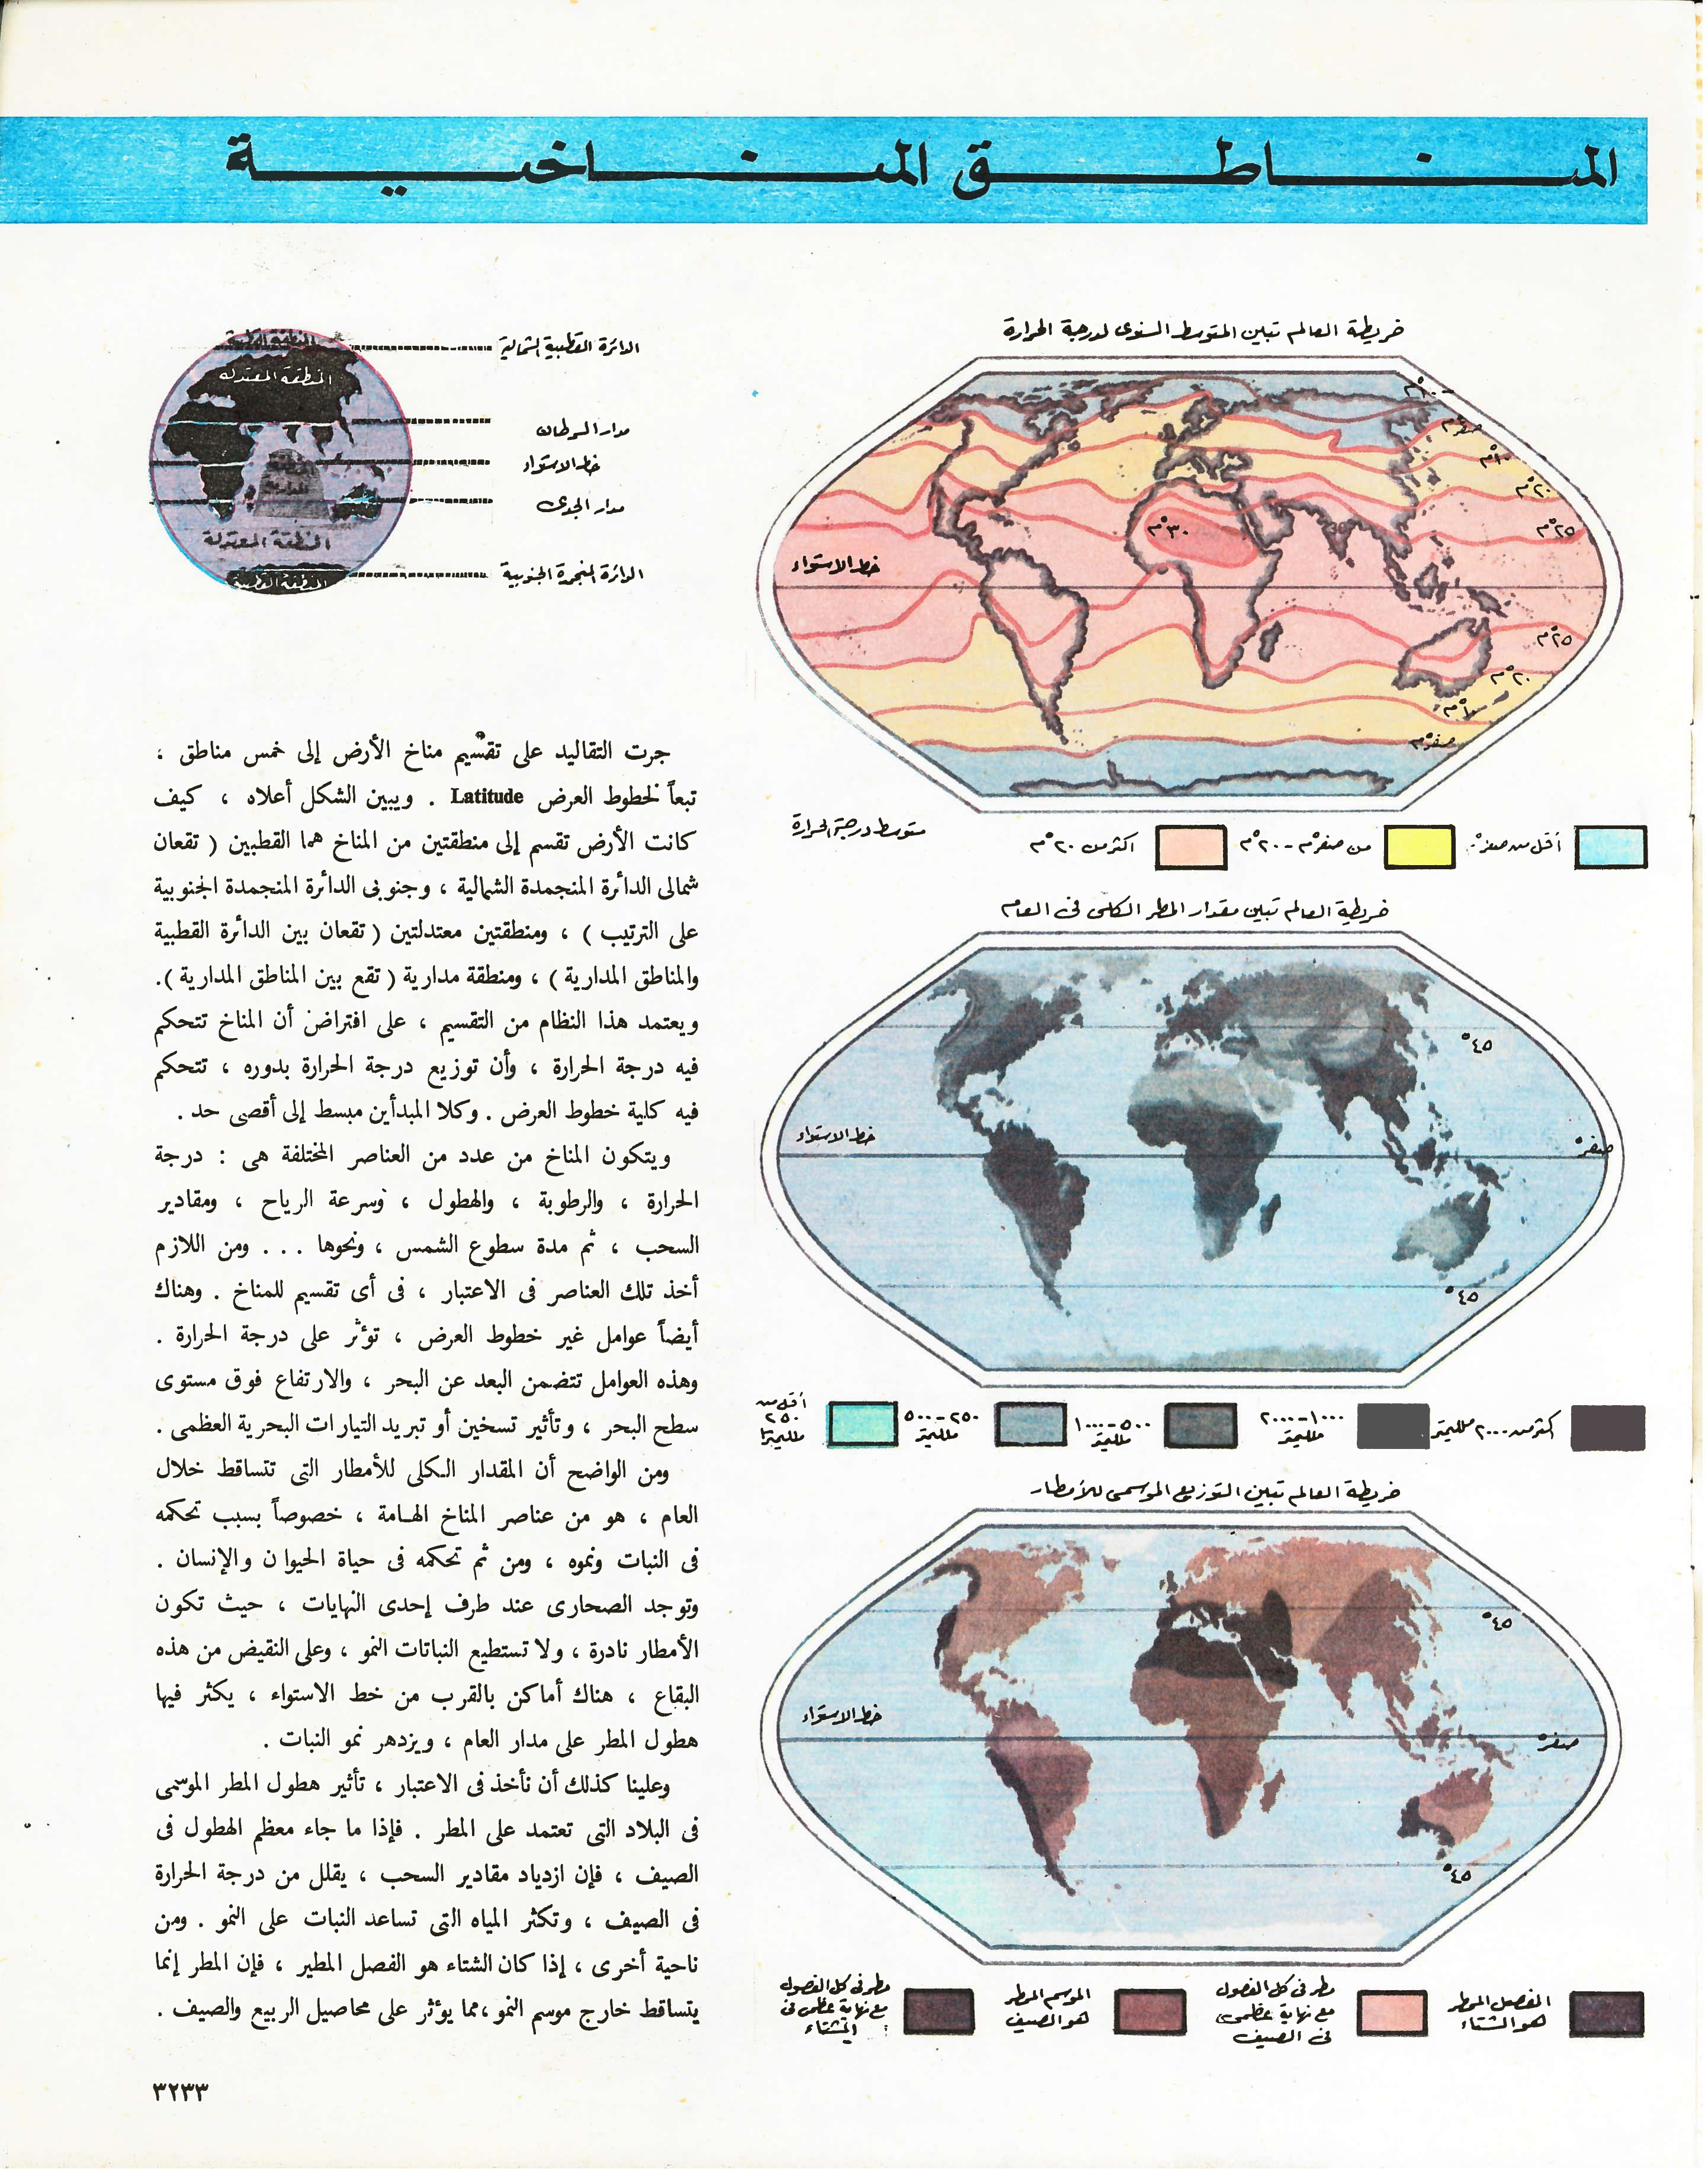 المناطق المناخية
خريطة العالم تبين المتوسط السنوى لدرجة الحرارة
-١٠°م
صفر°م
١٠°م
٢٠°م
٢٥°م
٣٠°م
خط الاستواء
٢٥°م
٢٠°م
١٠°م
صفر°م
أقل من صفر°
من صفر°م - ٢٠°م
اكثر من ٢٠°م
متوسط درجة الحرارة
خريطة العالم تبين مقدار المطر الكلى فى العام
٤٥°
خط الاستواء
صفر°
٤٥°
اكثر من ٢٠٠٠ ملليمتر
١٠٠٠-٢٠٠٠
ملليمتر
٥٠٠-١٠٠٠
ملليمتر
٢٥٠-٥٠٠
ملليمتر
أقل من
٢٥٠
ملليمترا
خريطة العالم تبين التوزيع الموسمى للأمطار
٤٥°
خط الاستواء
صفر°
٤٥°
الفصل الممطر
هو الشتاء
مطر فى كل الفصول
مع نهاية عظمى
فى الصيف
الموسم الممطر
هو الصيف
مطر فى كل الفصول
مع نهاية عظمى فى
الشتاء
الدائرة القطبية الشمالية
مدار السرطان
خط الاستواء
مدار الجدى
الدائرة المنجمدة الجنوبية
المنطقة القطبية
المنطقة المعتدله
المنطقة المعتدلة
المنطقة القطبية
جرت التقاليد على تقسيم مناخ الأرض إلى خمس مناطق ،
تبعاً لخطوط العرض Latitude . ويبين الشكل أعلاه ، كيف
كانت الأرض تقسم إلى منطقتين من المناخ هما القطبين ( تقعان
شمالى الدائرة المنجمدة الشمالية ، وجنوبى الدائرة المنجمدة الجنوبية
على الترتيب ) ، ومنطقتين معتدلتين ( تقعان بين الدائرة القطبية
والمناطق المدارية ) ، ومنطقة مدارية ( تقع بين المناطق المدارية ).
ويعتمد هذا النظام من التقسيم ، على افتراض أن المناخ تتحكم
فيه درجة الحرارة ، وأن توزيع درجة الحرارة بدوره ، تتحكم
فيه كلية خطوط العرض . وكلا المبدأين مبسط إلى أقصى حد .
ويتكون المناخ من عدد من العناصر المختلفة هى : درجة
الحرارة ، والرطوبة ، والهطول ، وسرعة الرياح ، ومقادير
السحب ، ثم مدة سطوع الشمس ، ونحوها . . . ومن اللازم
أخذ تلك العناصر فى الاعتبار ، فى أى تقسيم للمناخ . وهناك
أيضاً عوامل غير خطوط العرض ، تؤثر على درجة الحرارة .
وهذه العوامل تتضمن البعد عن البحر ، والارتفاع فوق مستوى
سطح البحر ، وتأثير تسخين أو تبريد التيارات البحرية العظمى .
ومن الواضح أن المقدار الكلى للأمطار التى تتساقط خلال
العام ، هو من عناصر المناخ الهامة ، خصوصاً بسبب تحكمه
فى النبات ونموه ، ومن ثم تحكمه فى حياة الحيوان والإنسان .
وتوجد الصحارى عند طرف إحدى النهايات ، حيث تكون
الأمطار نادرة ، ولا تستطيع النباتات النمو ، وعلى النقيض من هذه
البقاع ، هناك أماكن بالقرب من خط الاستواء ، يكثر فيها
هطول المطر على مدار العام ، ويزدهر نمو النبات .
وعلينا كذلك أن نأخذ فى الاعتبار ، تأثير هطول المطر الموسمى
فى البلاد التى تعتمد على المطر . فإذا ما جاء معظم الهطول فى
الصيف ، فإن ازدياد مقادير السحب ، يقلل من درجة الحرارة
فى الصيف ، وتكثر المياه التى تساعد النبات على النمو . ومن
ناحية أخرى ، إذا كان الشتاء هو الفصل المطير ، فإن المطر إنما
يتساقط خارج موسم النمو ، مما يؤثر على محاصيل الربيع والصيف .
٣٢٣٣